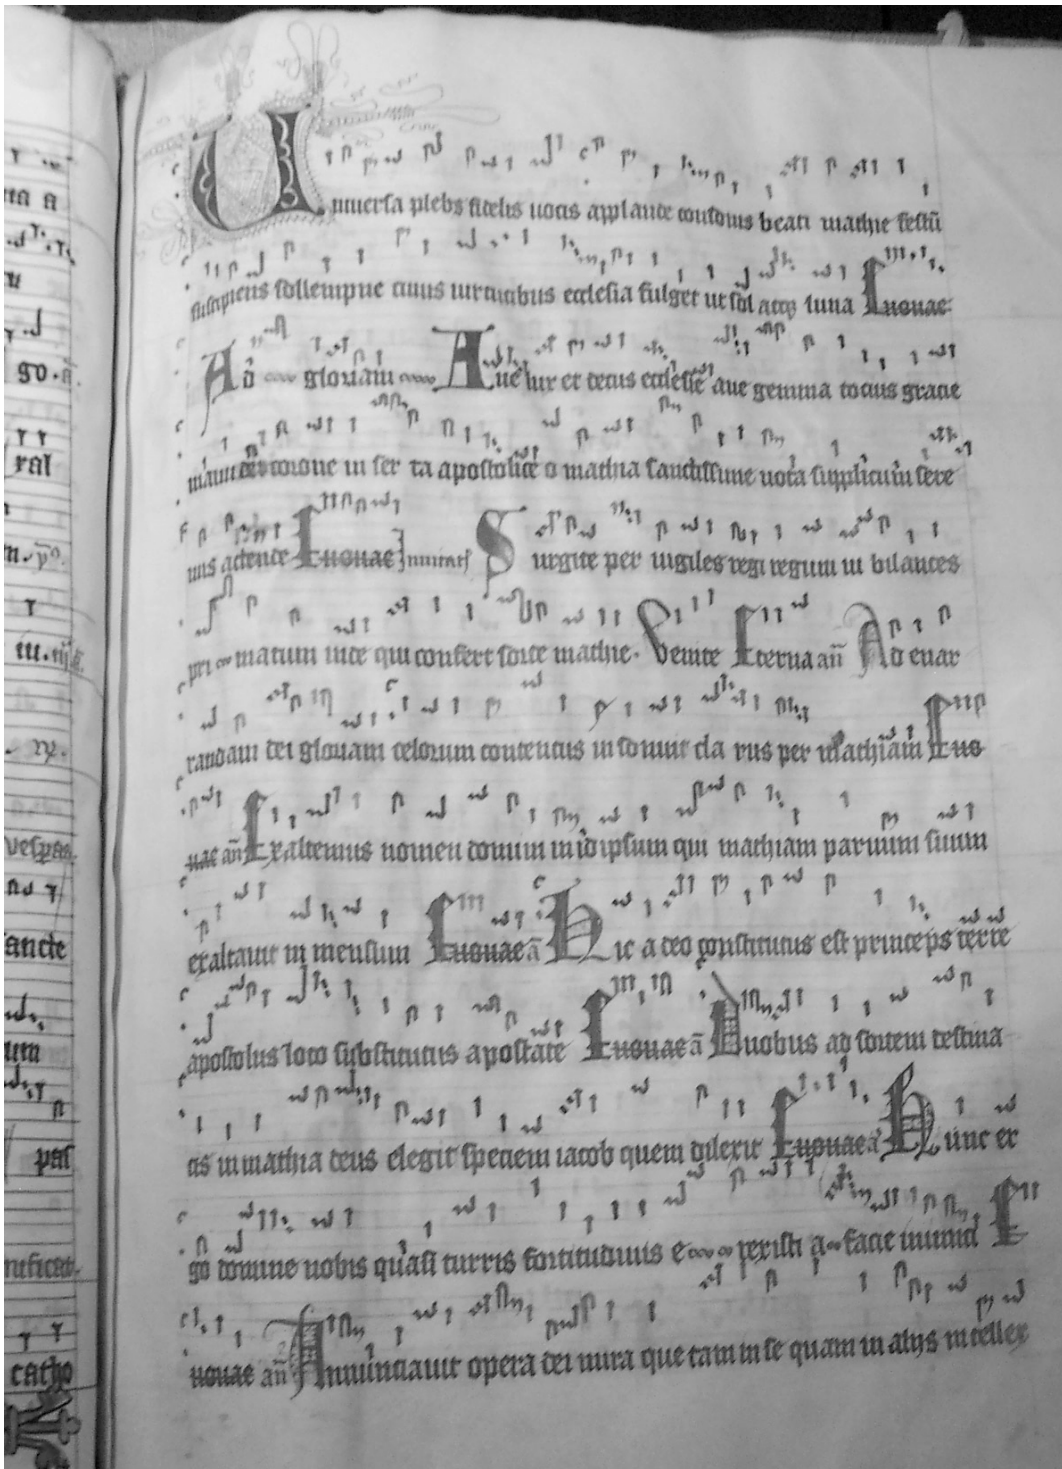 Universa plebs fidelis vocis applaude consonis beati mathie festū
suscipiens sollempne cuius virtutibus ecclesia fulget ut sol atq luna Euouae
Ad gloriam Ave lux et decus ecclesie ave gemma totius gracie
in ser ta apostolice o mathia sanctissime vota supplicum sere
nus attende Euouae Invitat Surgite per vigiles regi regum iu bilantes
pri matum vite qui confert sorte mathie. Venite Eterna an Ad enar
randam dei gloriam celorum contentus insonuit cla rus per mathiam Euo
uae an Exaltemus nomen domini in id ipsum qui mathiam parvum suum
exaltavit in mensum Euouae a Hic a deo constitutus est princeps terre
apostolus loco substitutus apostate Euouae a Duobus ad sortem destina
tis in mathia deus elegit speciem iacob quem dilexit Euouae a Hunc er
go domine nobis quasi turris fortitudinis e rexisti a facie inimici E
uouae an Annunciavit opera dei mira que tam in se quam in alijs intellex
ral
go
vespas
sancte
pas
catho